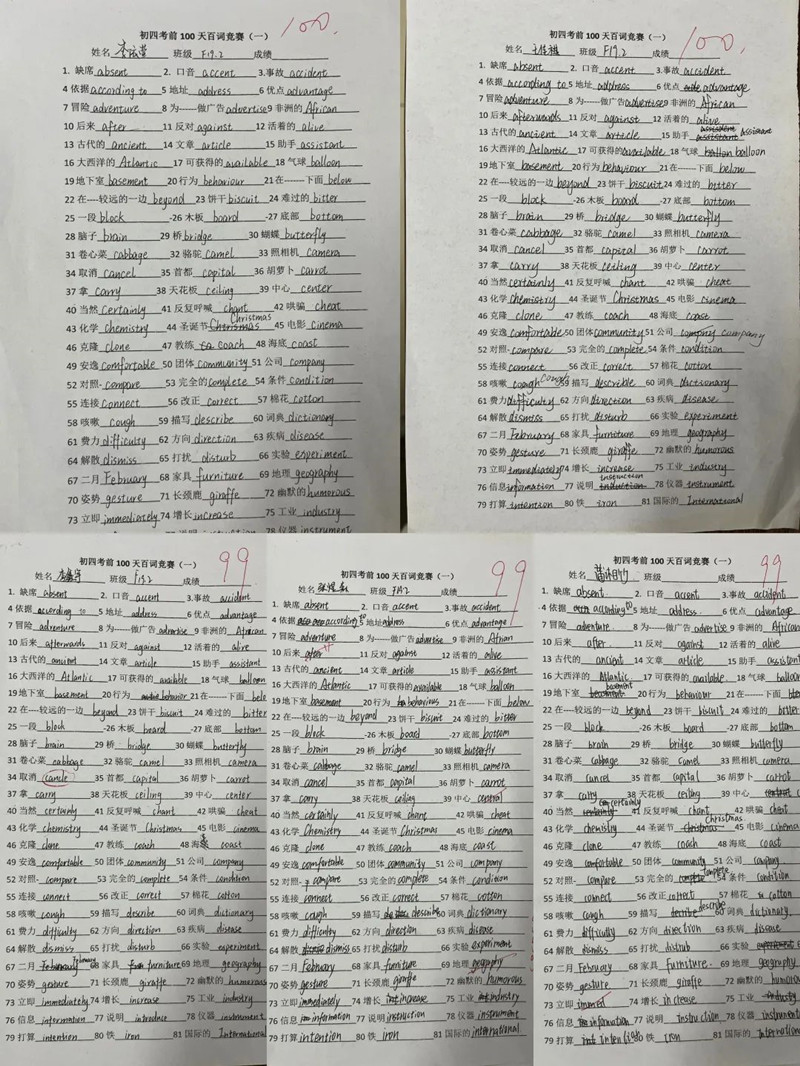 100.
初四考前 100 天百词竞赛（一）
姓名 班级 F19.2 成绩
1. 缺席 absent 2. 口音 accent 3.事故 accident
4 依据 according to 5 地址 address 6 优点 advantage
7 冒险 adventure 8 为------做广告 advertise 9 非洲的 African
10 后来 after 11 反对 against 12 活着的 alive
13 古代的 ancient 14 文章 article 15 助手 assistant
16 大西洋的 Atlantic 17 可获得的 available 18 气球 balloon
19 地下室 basement 20 行为 behaviour 21 在-------下面 below
22 在----较远的一边 beyond 23 饼干 biscuit 24 难过的 bitter
25 一段 block -26 木板 board -27 底部 bottom
28 脑子 brain 29 桥 bridge 30 蝴蝶 butterfly
31 卷心菜 cabbage 32 骆驼 camel 33 照相机 camera
34 取消 cancel 35 首都 capital 36 胡萝卜 carrot
37 拿 carry 38 天花板 ceiling 39 中心 center
40 当然 certainly 41 反复呼喊 chant 42 哄骗 cheat
43 化学 chemistry 44 圣诞节 Christmas 45 电影 cinema
46 克隆 clone 47 教练 coach 48 海底 coast
49 安逸 comfortable 50 团体 community 51 公司 company
52 对照- compare 53 完全的 complete 54 条件 condition
55 连接 connect 56 改正 correct 57 棉花 cotton
58 咳嗽 cough 59 描写 describe 60 词典 dictionary
61 费力 difficulty 62 方向 direction 63 疾病 disease
64 解散 dismiss 65 打扰 disturb 66 实验 experiment
67 二月 February 68 家具 furniture 69 地理 geography
70 姿势 gesture 71 长颈鹿 giraffe 72 幽默的 humorous
73 立即 immediately 74 增长 increase 75 工业 industry
78 仪器 instrument
100.
初四考前 100 天百词竞赛（一）
姓名 班级 F19.2 成绩
1. 缺席 absent 2. 口音 accent 3.事故 accident
4 依据 according to 5 地址 address 6 优点 advantage
7 冒险 adventure 8 为------做广告 advertise 9 非洲的 African
10 后来 afterwards 11 反对 against 12 活着的 alive
13 古代的 ancient 14 文章 article 15 助手 assistant
16 大西洋的 Atlantic 17 可获得的 available 18 气球 balloon
19 地下室 basement 20 行为 behaviour 21 在-------下面 below
22 在----较远的一边 beyond 23 饼干 biscuit 24 难过的 bitter
25 一段 block -26 木板 board -27 底部 bottom
28 脑子 brain 29 桥 bridge 30 蝴蝶 butterfly
31 卷心菜 cabbage 32 骆驼 camel 33 照相机 camera
34 取消 cancel 35 首都 capital 36 胡萝卜 carrot
37 拿 carry 38 天花板 ceiling 39 中心 center
40 当然 certainly 41 反复呼喊 chant 42 哄骗 cheat
43 化学 chemistry 44 圣诞节 Christmas 45 电影 cinema
46 克隆 clone 47 教练 coach 48 海底 coast
49 安逸 comfortable 50 团体 community 51 公司 company
52 对照- compare 53 完全的 complete 54 条件 condition
55 连接 connect 56 改正 correct 57 棉花 cotton
58 咳嗽 cough 59 描写 describe 60 词典 dictionary
61 费力 difficulty 62 方向 direction 63 疾病 disease
64 解散 dismiss 65 打扰 disturb 66 实验 experiment
67 二月 February 68 家具 furniture 69 地理 geography
70 姿势 gesture 71 长颈鹿 giraffe 72 幽默的 humorous
73 立即 immediately 74 增长 increase 75 工业 industry
76 信息 information 77 说明 instruction 78 仪器 instrument
79 打算 intention 80 铁 iron 81 国际的 International
99
初四考前 100 天百词竞赛（一）
姓名 班级 F19.2 成绩
1. 缺席 absent 2. 口音 accent 3.事故 accident
4 依据 according to 5 地址 address 6 优点 advantage
7 冒险 adventure 8 为------做广告 advertise 9 非洲的 African
10 后来 afterwards 11 反对 against 12 活着的 alive
13 古代的 ancient 14 文章 article 15 助手 assistant
16 大西洋的 Atlantic 17 可获得的 available 18 气球 balloon
19 地下室 basement 20 行为 behavior 21 在-------下面
22 在----较远的一边 beyond 23 饼干 biscuit 24 难过的 bitter
25 一段 block -26 木板 board -27 底部 bottom
28 脑子 brain 29 桥 bridge 30 蝴蝶 butterfly
31 卷心菜 cabbage 32 骆驼 camel 33 照相机 camera
34 取消 cancle 35 首都 capital 36 胡萝卜 carrot
37 拿 carry 38 天花板 ceiling 39 中心 center
40 当然 certainly 41 反复呼喊 chant 42 哄骗 cheat
43 化学 chemistry 44 圣诞节 Christmas 45 电影 cinema
46 克隆 clone 47 教练 coach 48 海底 coast
49 安逸 comfortable 50 团体 community 51 公司 company
52 对照- compare 53 完全的 complete 54 条件 condition
55 连接 connect 56 改正 correct 57 棉花 cotton
58 咳嗽 cough 59 描写 describe 60 词典 dictionary
61 费力 difficulty 62 方向 direction 63 疾病 disease
64 解散 dismiss 65 打扰 disturb 66 实验 experiment
67 二月 February 68 家具 furniture 69 地理 geography
70 姿势 gesture 71 长颈鹿 giraffe 72 幽默的 humorous
73 立即 immediately 74 增长 increase 75 工业 industry
76 信息 information 77 说明 introduce 78 仪器 instrument
79 打算 intention 80 铁 iron 81 国际的 International
99
初四考前 100 天百词竞赛（一）
姓名 班级 成绩
1. 缺席 absent 2. 口音 accent 3.事故 accident
4 依据 according to 5 地址 address 6 优点 advantage
7 冒险 adventure 8 为------做广告 advertise 9 非洲的
10 后来 after 11 反对 against 12 活着的 alive
13 古代的 ancient 14 文章 article 15 助手 assistant
16 大西洋的 Atlantic 17 可获得的 available 18 气球 balloon
19 地下室 basement 20 行为 behavious 21 在-------下面 below
22 在----较远的一边 beyond 23 饼干 biscuit 24 难过的 bitter
25 一段 block -26 木板 board -27 底部 bottom
28 脑子 brain 29 桥 bridge 30 蝴蝶 butterfly
31 卷心菜 cabbage 32 骆驼 camel 33 照相机 camera
34 取消 cancel 35 首都 capital 36 胡萝卜 carrot
37 拿 carry 38 天花板 ceiling 39 中心 central
40 当然 certainly 41 反复呼喊 chant 42 哄骗 cheat
43 化学 Chemistry 44 圣诞节 Christmas 45 电影 cinema
46 克隆 clone 47 教练 coach 48 海底 coast
49 安逸 comfortable 50 团体 community 51 公司 company
52 对照- compare 53 完全的 complete 54 条件 condition
55 连接 connect 56 改正 correct 57 棉花 cotton
58 咳嗽 cough 59 描写 describe 60 词典 dictionary
61 费力 difficulty 62 方向 direction 63 疾病 disease
64 解散 dismiss 65 打扰 disturb 66 实验 experiment
67 二月 February 68 家具 furniture 69 地理
70 姿势 gesture 71 长颈鹿 giraffe 72 幽默的 humorous
73 立即 immediately 74 增长 increase 75 工业 industry
76 信息 information 77 说明 instruction 78 仪器 instrument
79 打算 intention 80 铁 iron 81 国际的 international
99
初四考前 100 天百词竞赛（一）
姓名 班级 成绩
1. 缺席 absent 2. 口音 accent 3.事故 accident
4 依据 according to 5 地址 address 6 优点 advantage
7 冒险 adventure 8 为------做广告 advertise 9 非洲的 African
10 后来 after 11 反对 against 12 活着的 alive
13 古代的 ancient 14 文章 article 15 助手 assistant
16 大西洋的 Atlantic 17 可获得的 available 18 气球 balloon
19 地下室 basement 20 行为 behaviour 21 在-------下面
22 在----较远的一边 beyond 23 饼干 biscuit 24 难过的 bitter
25 一段 block -26 木板 board -27 底部 bottom
28 脑子 brain 29 桥 bridge 30 蝴蝶 butterfly
31 卷心菜 cabbage 32 骆驼 camel 33 照相机 camera
34 取消 cancel 35 首都 capital 36 胡萝卜 carrot
37 拿 carry 38 天花板 ceiling 39 中心
40 当然 certainly 41 反复呼喊 chant 42 哄骗 cheat
43 化学 chemistry 44 圣诞节 Christmas 45 电影 cinema
46 克隆 clone 47 教练 coach 48 海底 coast
49 安逸 comfortable 50 团体 community 51 公司 company
52 对照- compare 53 完全的 complete 54 条件 condition
55 连接 connect 56 改正 correct 57 棉花 cotton
58 咳嗽 cough 59 描写 describe 60 词典 dictionary
61 费力 difficulty 62 方向 direction 63 疾病 disease
64 解散 dismiss 65 打扰 distub 66 实验
67 二月 February 68 家具 furniture 69 地理 geography
70 姿势 gesture 71 长颈鹿 giraffe 72 幽默的
73 立即 immed 74 增长 increase 75 工业 industry
76 信息 information 77 说明 Instruction 78 仪器 instrument
79 打算 80 铁 iron 81 国际的 International